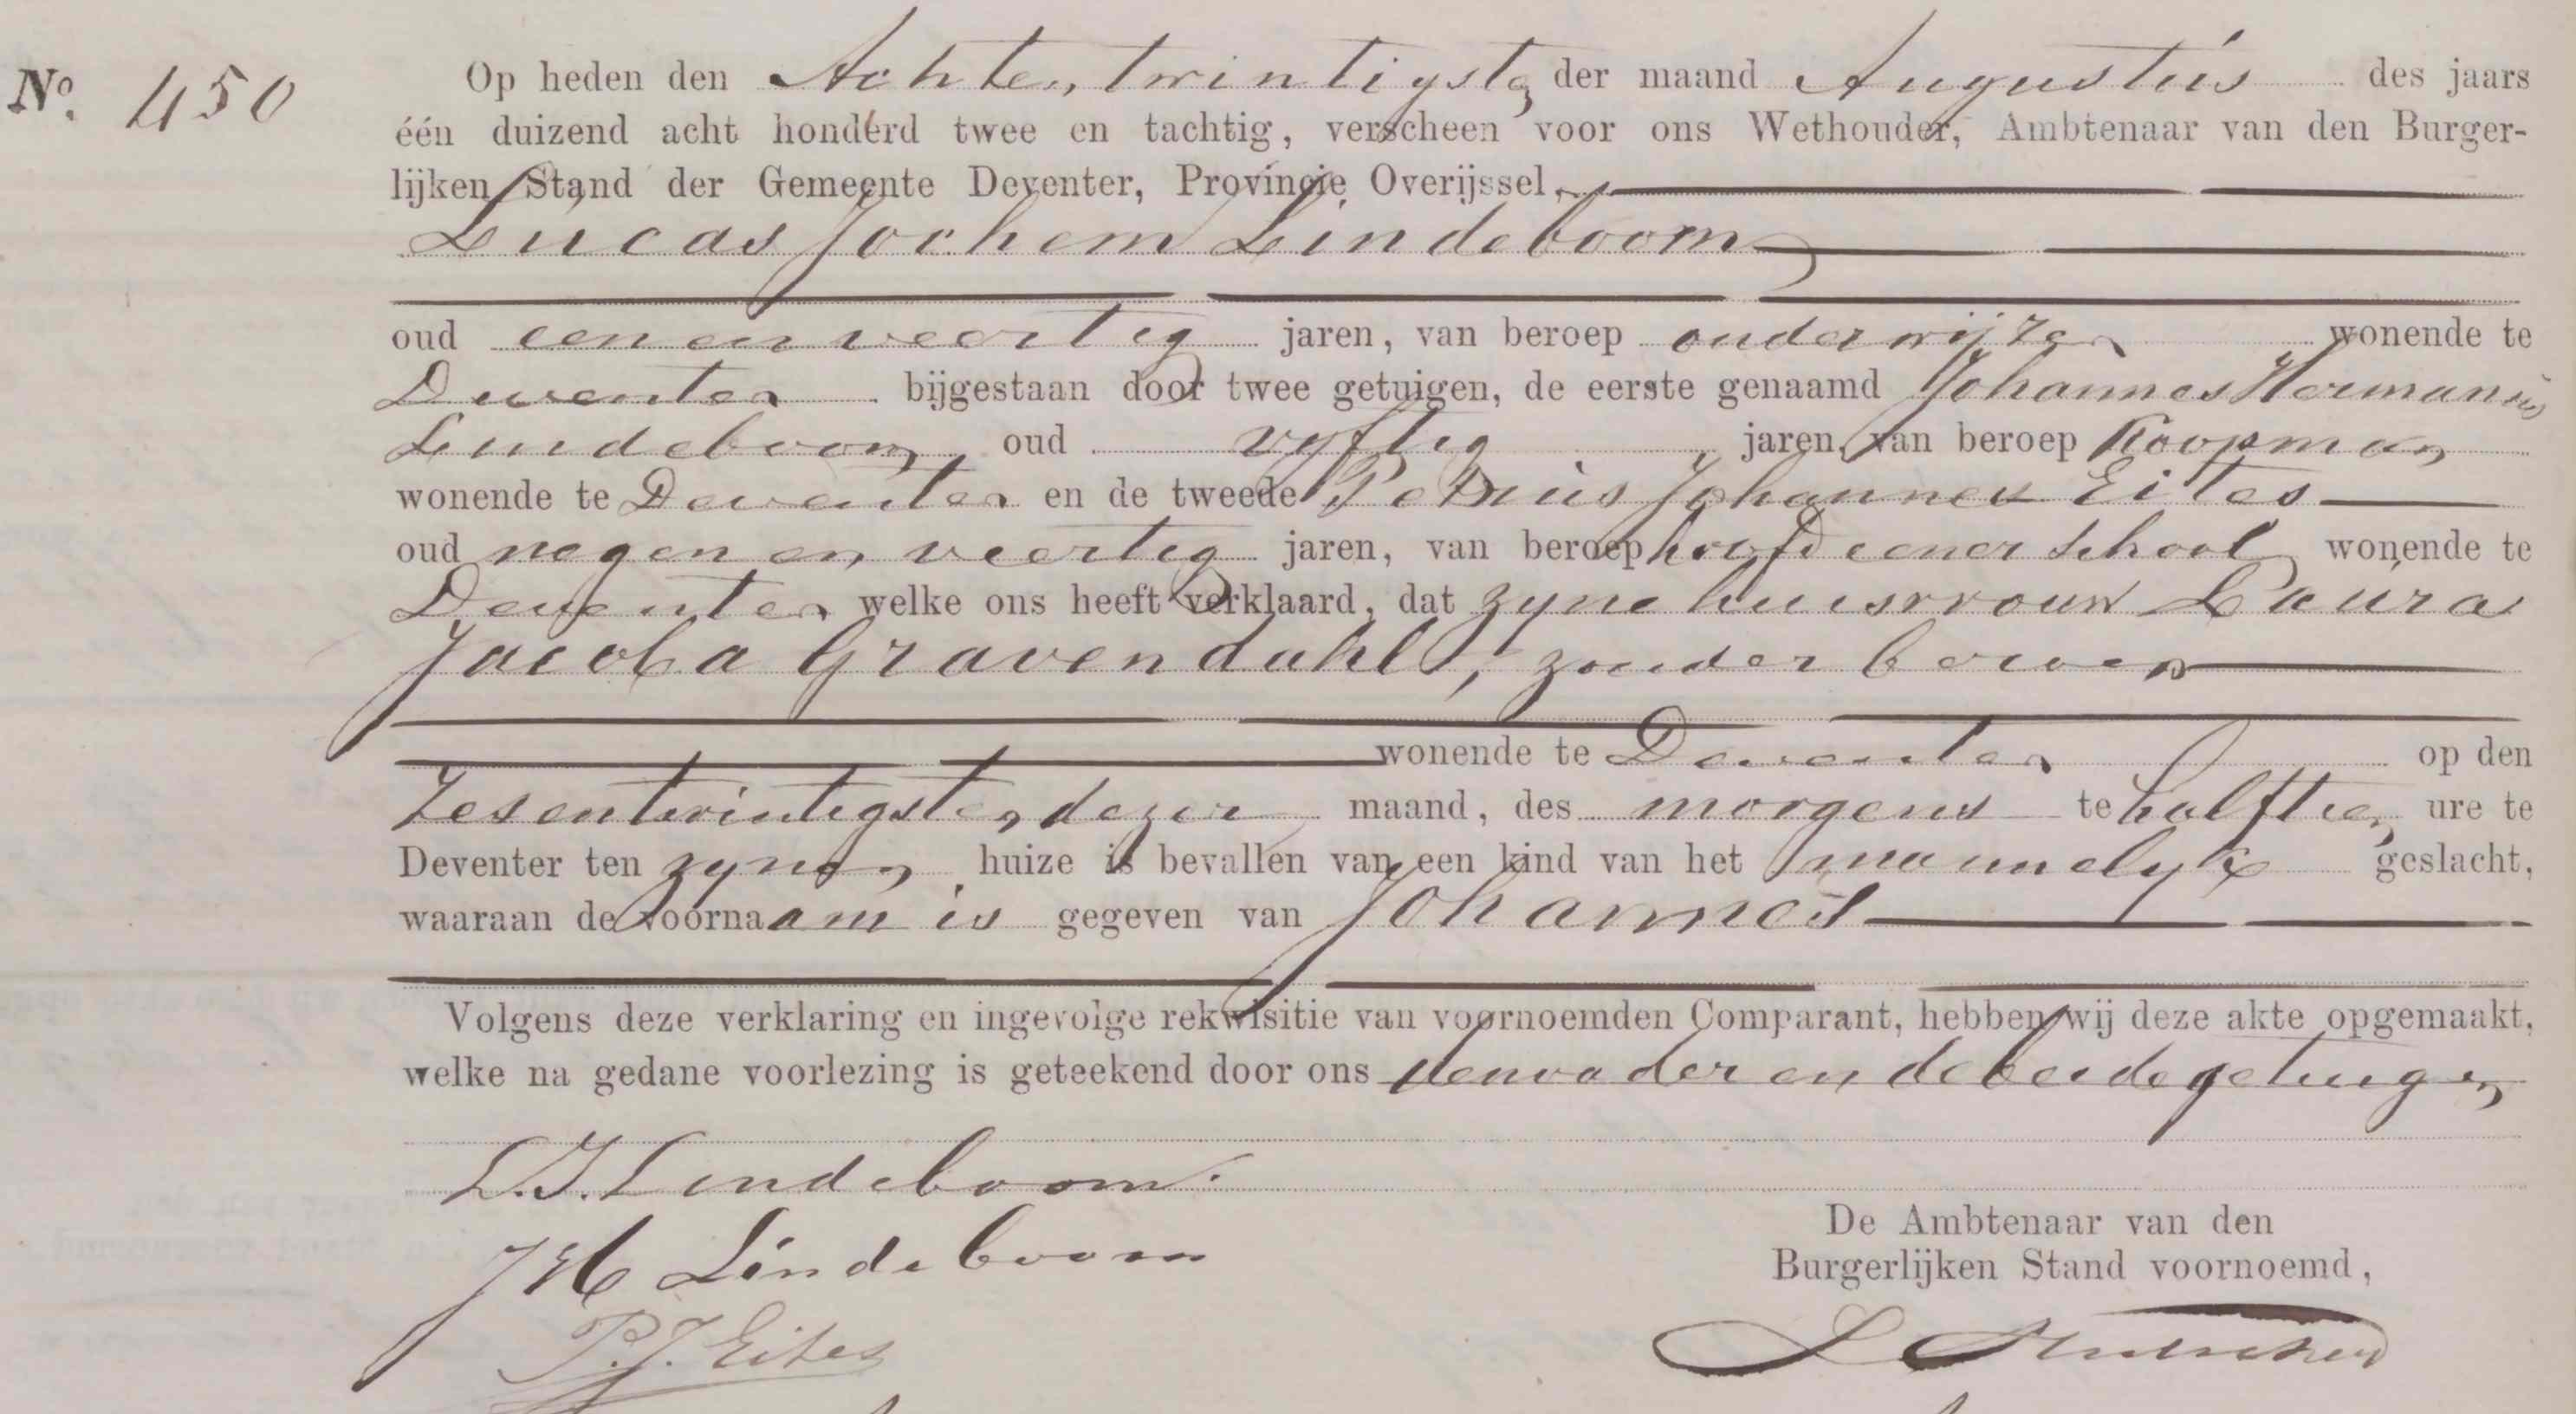 No. 450
Op heden den Achtentwintigsten der maand Augustus des jaars
één duizend acht honderd twee en tachtig, verscheen voor ons Wethouder, Ambtenaar van den Burger-
lijken Stand der Gemeente Deventer, Provincie Overijssel,
Lucas Jochem Lindeboom
oud een en veertig jaren, van beroep onderwijzer wonende te
Deventer bijgestaan door twee getuigen, de eerste genaamd Johannes Hermanus
Lindeboom, oud vyftig jaren, van beroep Koopman
wonende te Deventer en de tweede Petrus Johannes Eites
oud negen en veertig jaren, van beroep hoofd eener school wonende te
Deventer welke ons heeft verklaard, dat zyne huisvrouw Laura
Jacoba Gravendahl, zonder beroep
wonende te Deventer op den
Zesentwintigsten dezer maand, des morgens te half tien ure te
Deventer ten zynen huize is bevallen van een kind van het mannelyk geslacht,
waaraan de voornaam is gegeven van Johannes
Volgens deze verklaring en ingevolge rekwisitie van voornoemden Comparant, hebben wij deze akte opgemaakt,
welke na gedane voorlezing is geteekend door ons den vader en de beide getuigen
L.J. Lindeboom.
J H Lindeboom
P.J. Eites
De Ambtenaar van den
Burgerlijken Stand voornoemd,